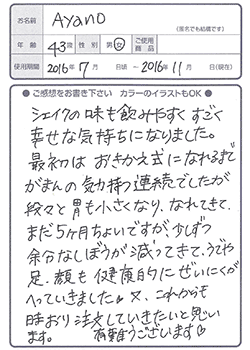 お名前 Ayano
(匿名でも結構です)
年齢 43歳 性別 男・女 ご使用商品
使用期間 2016年7月 日頃 ~ 2016年11月 日(現在)
●ご感想をお書き下さい カラーのイラストもOK●
シェイクの味も飲みやすく すごく
幸せな気持ちになりました。
最初は おきかえ式に なれるまで
がまんの 気持つ連続でしたが
段々と 胃も小さくなり、なれてきて、
まだ5ヶ月ちょいですが、少しずつ
余分なしぼうが 減ってきて、うでや
足、顔も 健康的にぜいにくが
へっていきました 又、これからも
時おり注文していきたいと思い
ます。 有難うございます